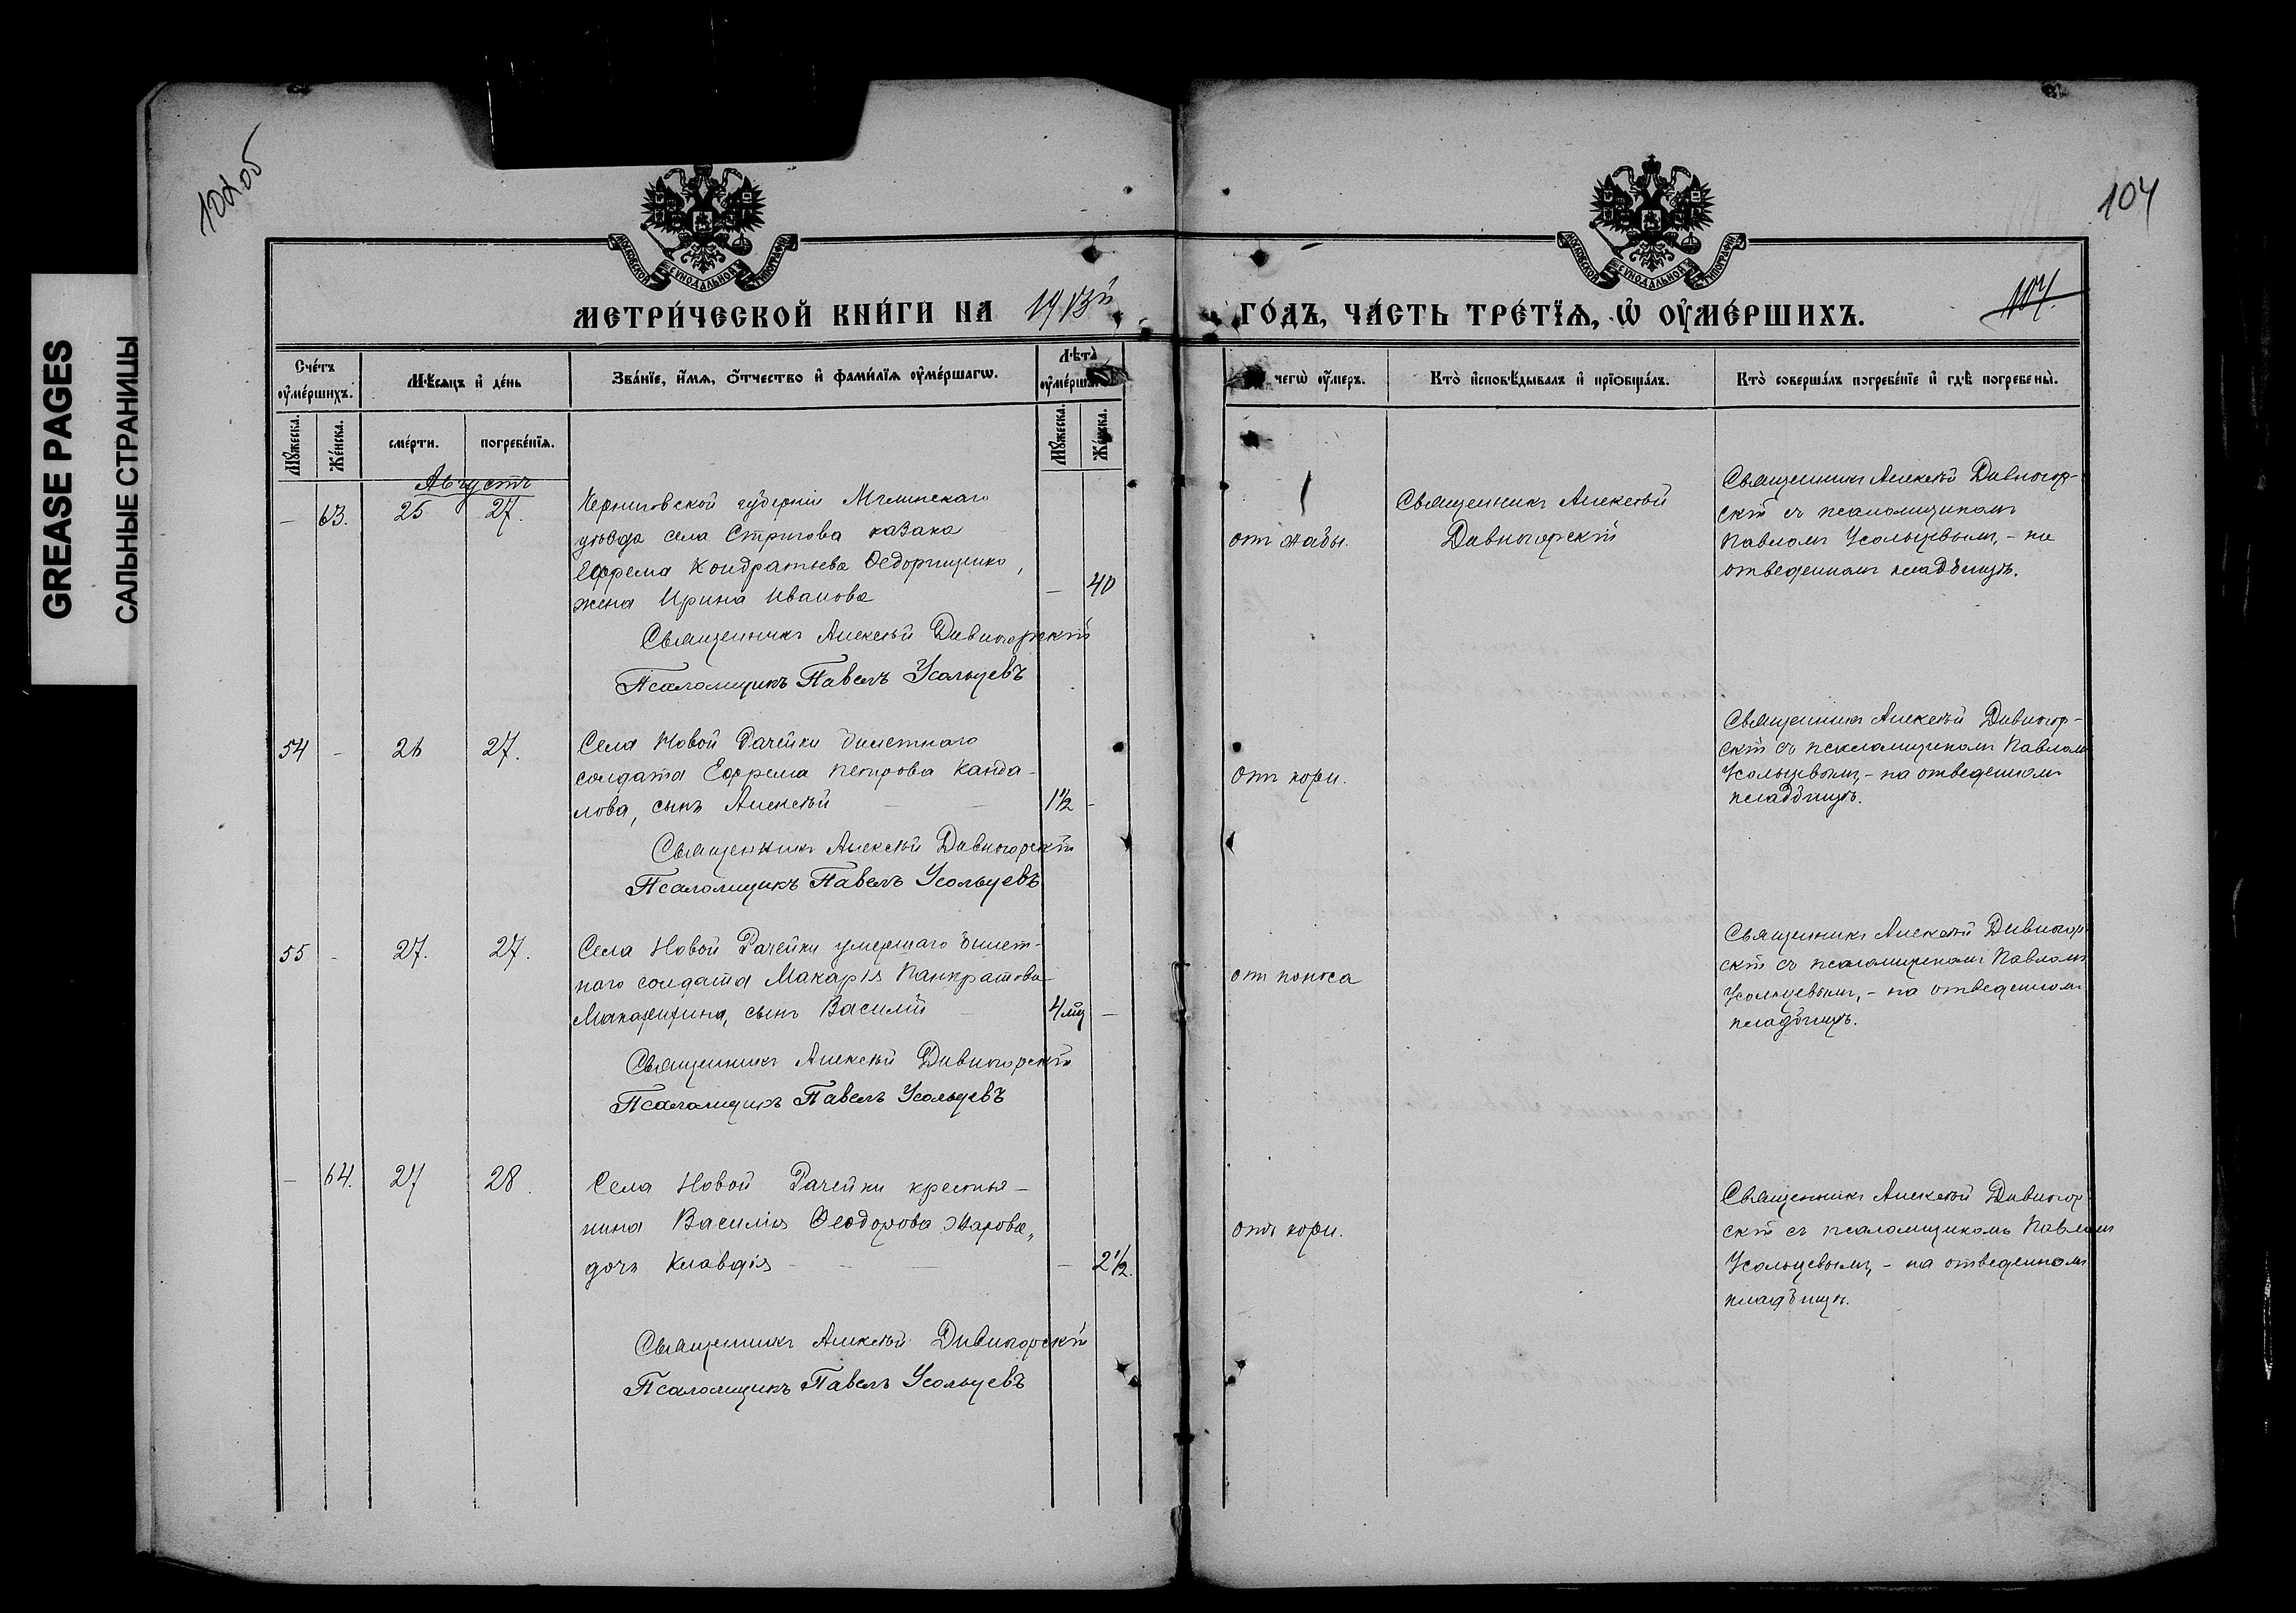 GREASE PAGES
САЛЬНЫЕ СТРАНИЦЫ
104
104.
МЕТРИ́ЧЕСКОЙ КНИ́ГИ НА 1913й ГО́ДЪ, ЧА́СТЬ ТРЕ́ТЇѦ, Ѡ҆ ОУ҆МЕ́РШИХЪ.
МОСКОВСКОЙ СѴНОДАЛЬНОЙ ТИПОГРАФІИ
МОСКОВСКОЙ СѴНОДАЛЬНОЙ ТИПОГРАФІИ
Сче́тъ оу҆ме́ршихъ.
Мѣ́сѧцъ и҆ де́нь
Зва́нїе, и҆́мѧ, ѻ҆́тчество и҆ фами́лїѧ оу҆ме́ршагѡ.
Лѣ́та оу҆ме́ршагѡ
чегѡ̀ оу҆́меръ.
Кто̀ и҆сповѣ́дывалъ и҆ прїѡбща́лъ.
Кто̀ соверша́лъ погребе́нїе и҆ гдѣ̀ погребены̀.
Мꙋ́жеска.
Же́нска.
сме́рти.
погребе́нїѧ.
Мꙋ́жеска.
Же́нска.
Августъ
– 63. 25 27.
Черниговской губерніи Мглинскаго
уѣзда села Стригова казака
Ефрема Кондратьева Ѳедорищенко,
жена Ирина Иванова – 40
Священникъ Алексѣй Дивногорскій
Псаломщикъ Павелъ Усольцевъ
отъ жабы.
Священникъ Алексѣй
Дивногорскій
Священникъ Алексѣй Дивногор-
скій съ псаломщикомъ
Павломъ Усольцевымъ, – на
отведенномъ кладбищѣ.
54 – 26 27.
Села Новой Рачейки билетнаго
солдата Ефрема Петрова Канда-
лова, сынъ Алексѣй – – 1½ –
Священникъ Алексѣй Дивногорскій
Псаломщикъ Павелъ Усольцевъ
отъ кори.
Священникъ Алексѣй Дивногор-
скій съ псаломщикомъ Павломъ
Усольцевымъ, – на отведенномъ
кладбищѣ.
55 – 27. 27.
Села Новой Рачейки умершаго билет-
наго солдата Макарія Панкратова
сынъ Василій – 4 –
Священникъ Алексѣй Дивногорскій
Псаломщикъ Павелъ Усольцевъ
отъ поноса
Священникъ Алексѣй Дивногор-
скій съ псаломщикомъ Павломъ
Усольцевымъ, – на отведенномъ
кладбищѣ.
– 64. 27 28.
Села Новой Рачейки крестья-
нина Василія Ѳеодорова Жарова,
дочь Клавдія – – – – 2½.
Священникъ Алексѣй Дивногорскій
Псаломщикъ Павелъ Усольцевъ
отъ кори.
Священникъ Алексѣй Дивногор-
скій съ псаломщикомъ Павломъ
Усольцевымъ, – на отведенномъ
кладбищѣ.